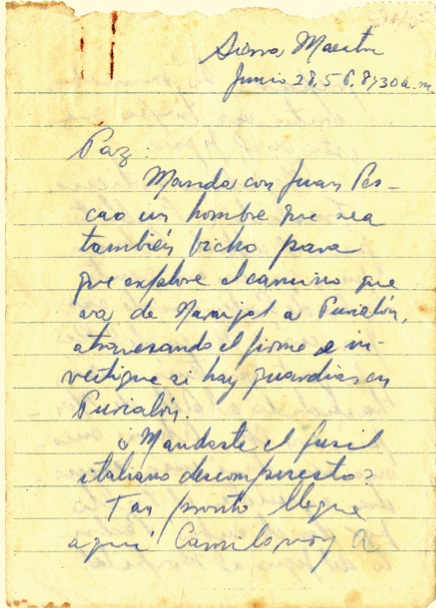 Sierra Maestra
Junio 28, 58. 8 y 30 a.m.
Paz:
Manda con Juan Pes-
cao un hombre que sea
también bicho para
que explore el camino que
va de Naranjal a Purialón,
atravesando el firme e in-
vestigue si hay guardias en
Purialón.
¿Mandaste el fusil
italiano descompuesto?
Tan pronto llegue
aquí Camilo voy a